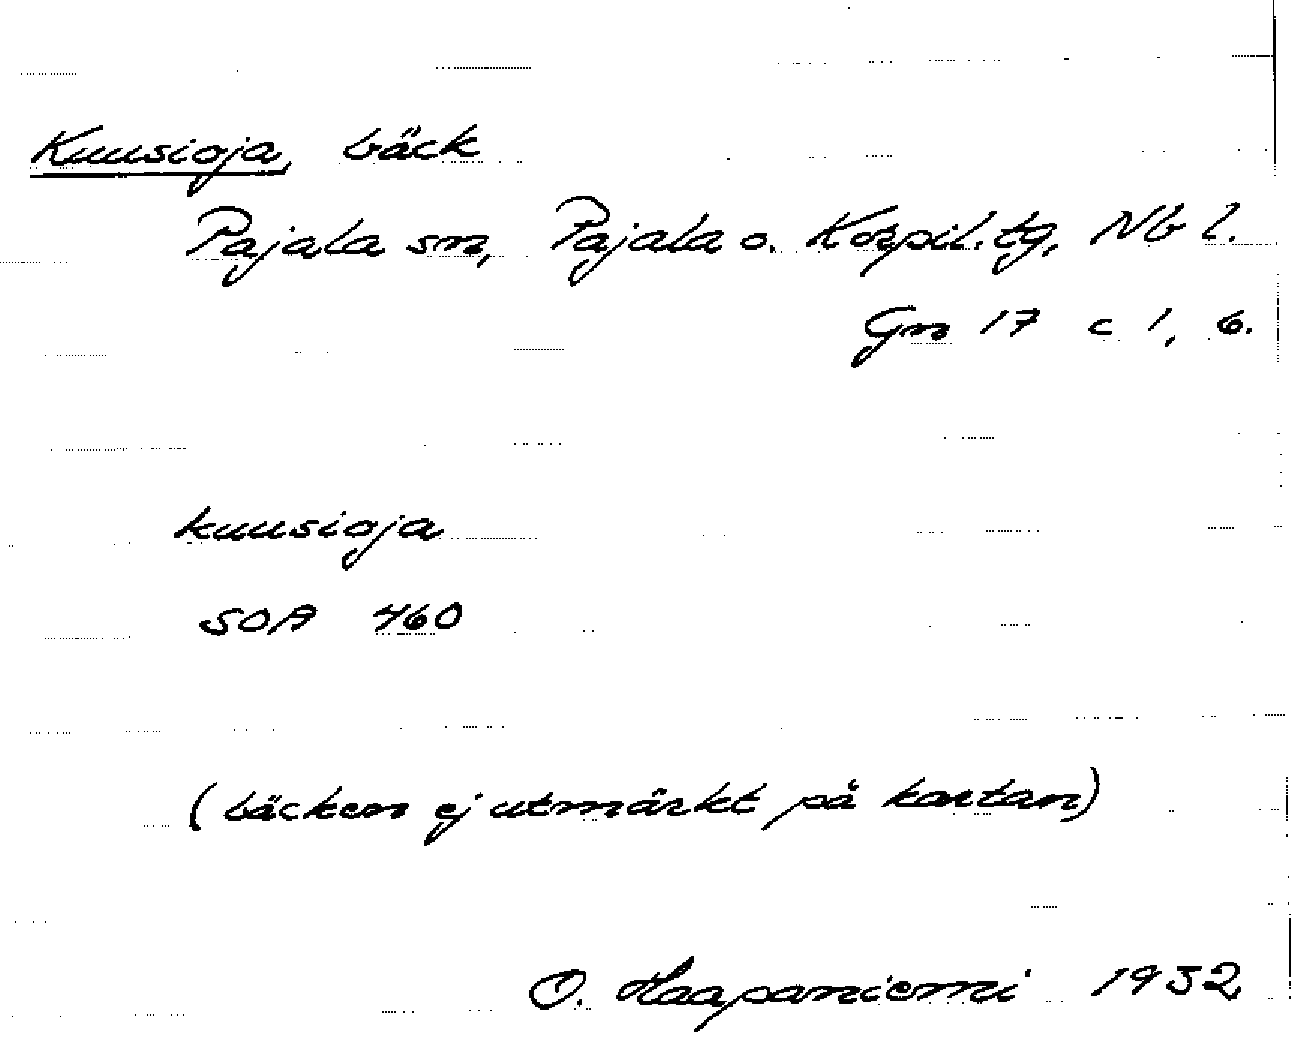 Kuusioja, bäck
Pajala sn, Pajala o. Korpil. tg, Nb l.
Gm 17 c 1, 6.
kuusioja
SOA 460
(bäcken ej utmärkt på kartan)
O. Haapaniemi 1932